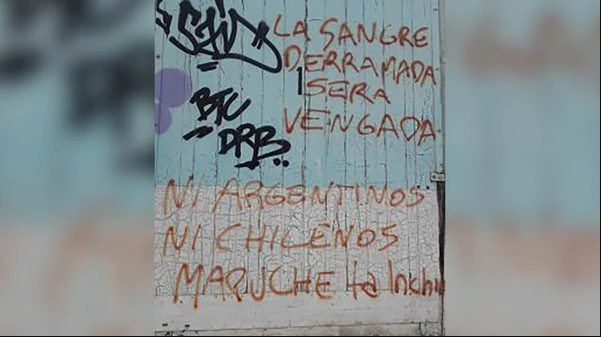 LA SANGRE
DERRAMADA
SERA
VENGADA
BTC
DRB
NI ARGENTINOS
NI CHILENOS
MAPUCHE ta Inchiñ